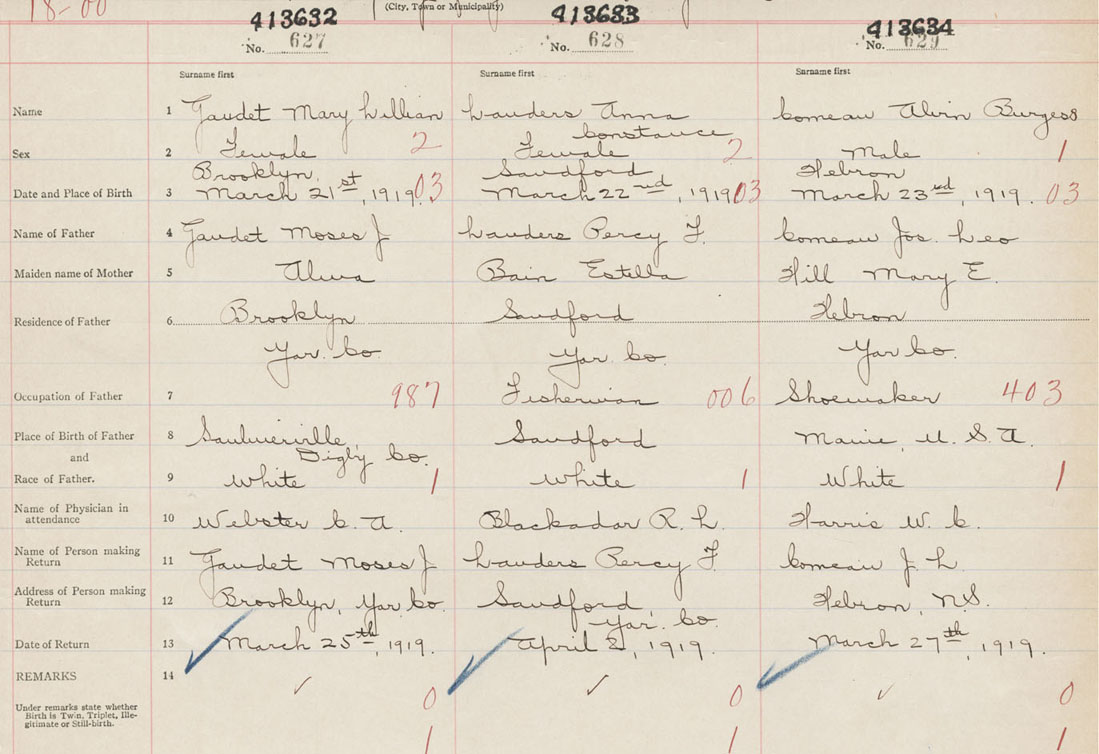 18-00
(City, Town or Municipality)
413632 413633 413634
No. 627 No. 628 No. 629
Surname first Surname first Surname first
Name 1 Gaudet Mary Lillian Landers Anna Constance Comeau Alvin Burgess
Sex 2 Female 2 Female 2 Male 1
Brooklyn, Sandford Hebron
Date and Place of Birth 3 March 21st, 1919 03 March 22nd, 1919 03 March 23rd, 1919. 03
Name of Father 4 Gaudet Moses J Landers Percy F. Comeau Jos. Leo
Maiden name of Mother 5 Alma Bain Estella Hill Mary E.
Residence of Father 6 Brooklyn Sandford Hebron
Yar. Co Yar. Co. Yar Co.
Occupation of Father 7 987 Fisherman 006 Shoemaker 403
Place of Birth of Father 8 Saulnierville, Sandford Maine, U. S. A.
and Digby Co.
Race of Father. 9 White 1 White 1 White 1
Name of Physician in
attendance 10 Webster C. A. Blackadar R. L. Harris W. C.
Name of Person making
Return 11 Gaudet Moses J Landers Percy F. Comeau J. L.
Address of Person making
Return 12 Brooklyn, Yar Co. Sandford, Yar. Co. Hebron, N.S.
Date of Return 13 March 25th, 1919. April 2, 1919. March 27th, 1919.
REMARKS 14 ✓ ✓ ✓
Under remarks state whether 0 0 0
Birth is Twin, Triplet, Ille-
gitimate or Still-birth.
1 1 1